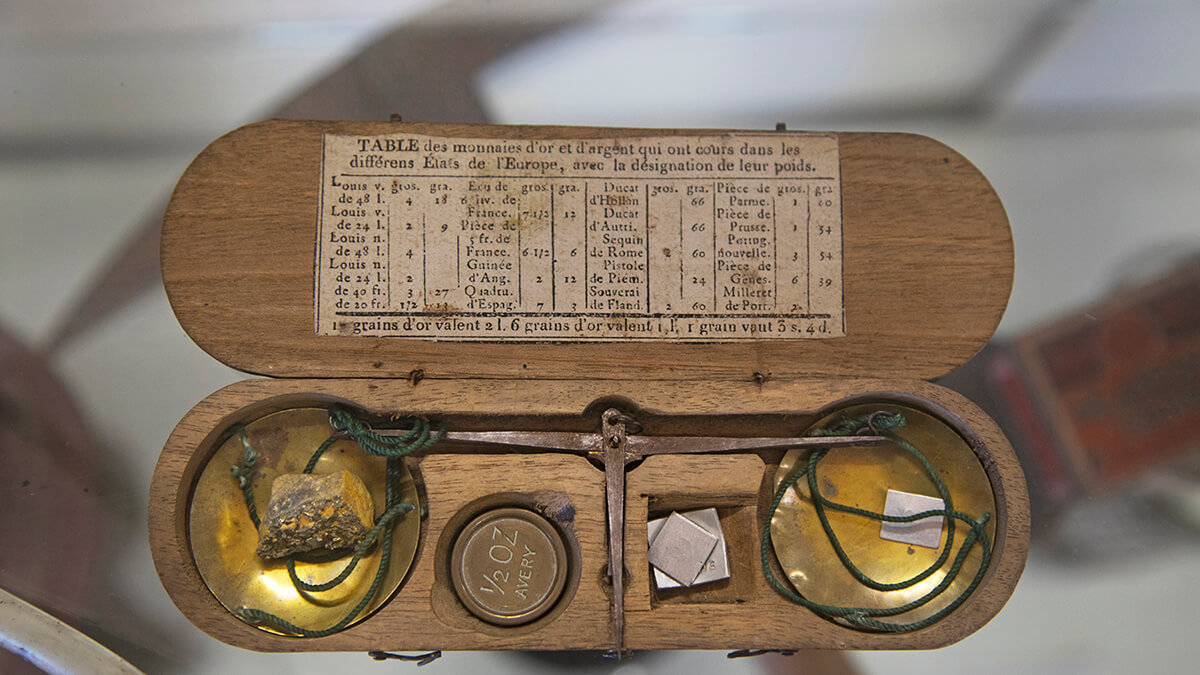 TABLE des monnaies d'or et d'argent qui ont cours dans les
différens États de l'Europe, avec la désignation de leur poids.
Louis v. gros. gra. Ecu de gros. gra. Ducat gros. gra. Pièce de gros. gra
de 48 l. 4 18 6 liv. de d'Hollan 66 Parme. 1
Louis v. France. 7 1/2 12 Ducat Pièce de
de 24 l. 2 9 Pièce de d'Autri. 66 Prusse. 1 54
Louis n. 5 fr. de Sequin Portug.
de 48 l. 4 France. 6 1/2 6 de Rome 2 60 nouvelle. 3 54
Louis n. Guinée Pistole Pièce de
de 24 l. 2 d'Ang. 2 12 de Piém. 24 Gênes. 6 39
de 40 fr. 3 27 Quadru. Souverai Milleret
de 20 fr. 1/2 d'Espag. 7 3 de Fland. 2 60 de Port. 2
grains d'or valent 2 l. 6 grains d'or valent 1 l. 1 grain vaut 3 s. 4 d.
1/2 OZ
AVERY